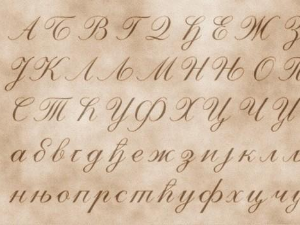 А Б В Г Д Ђ Е Ж З
Ј К Л Љ М Н Њ О П
С Т Ћ У Ф Х Ц Ч Џ
а б в г д ђ е ж з и ј к л љ
н њ о п р с т ћ у ф х ц ч џ